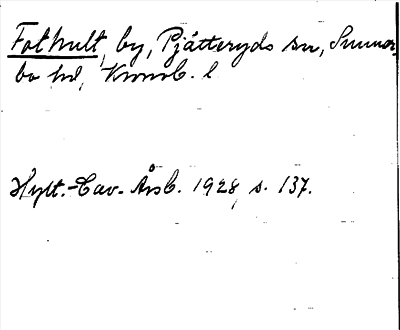 Fothult, by, Pjätteryds sn, Sunner-
bo hd, Kronob. l
Hylt.-Cav. Årsb. 1928, s. 137.